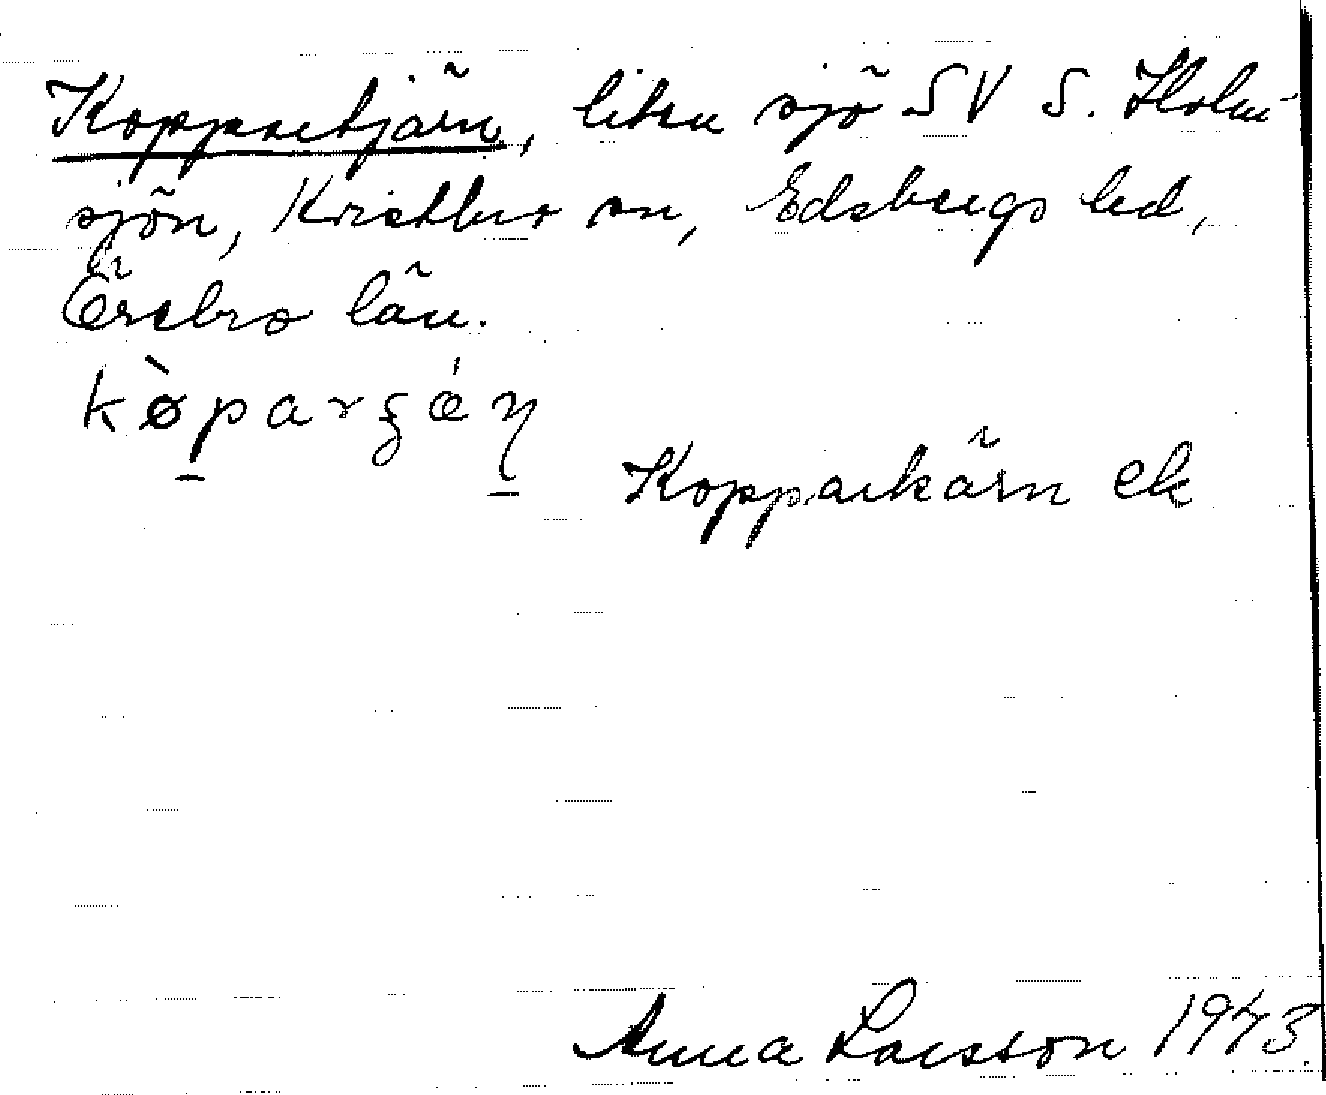 Koppartjärn, liten sjö SV S. Holm-
sjön, Kvistbro sn, Edsbergs hd,
Örebro län.
kø̀parʂǽn
Kopparkärn ek
Anna Larsson 1943.